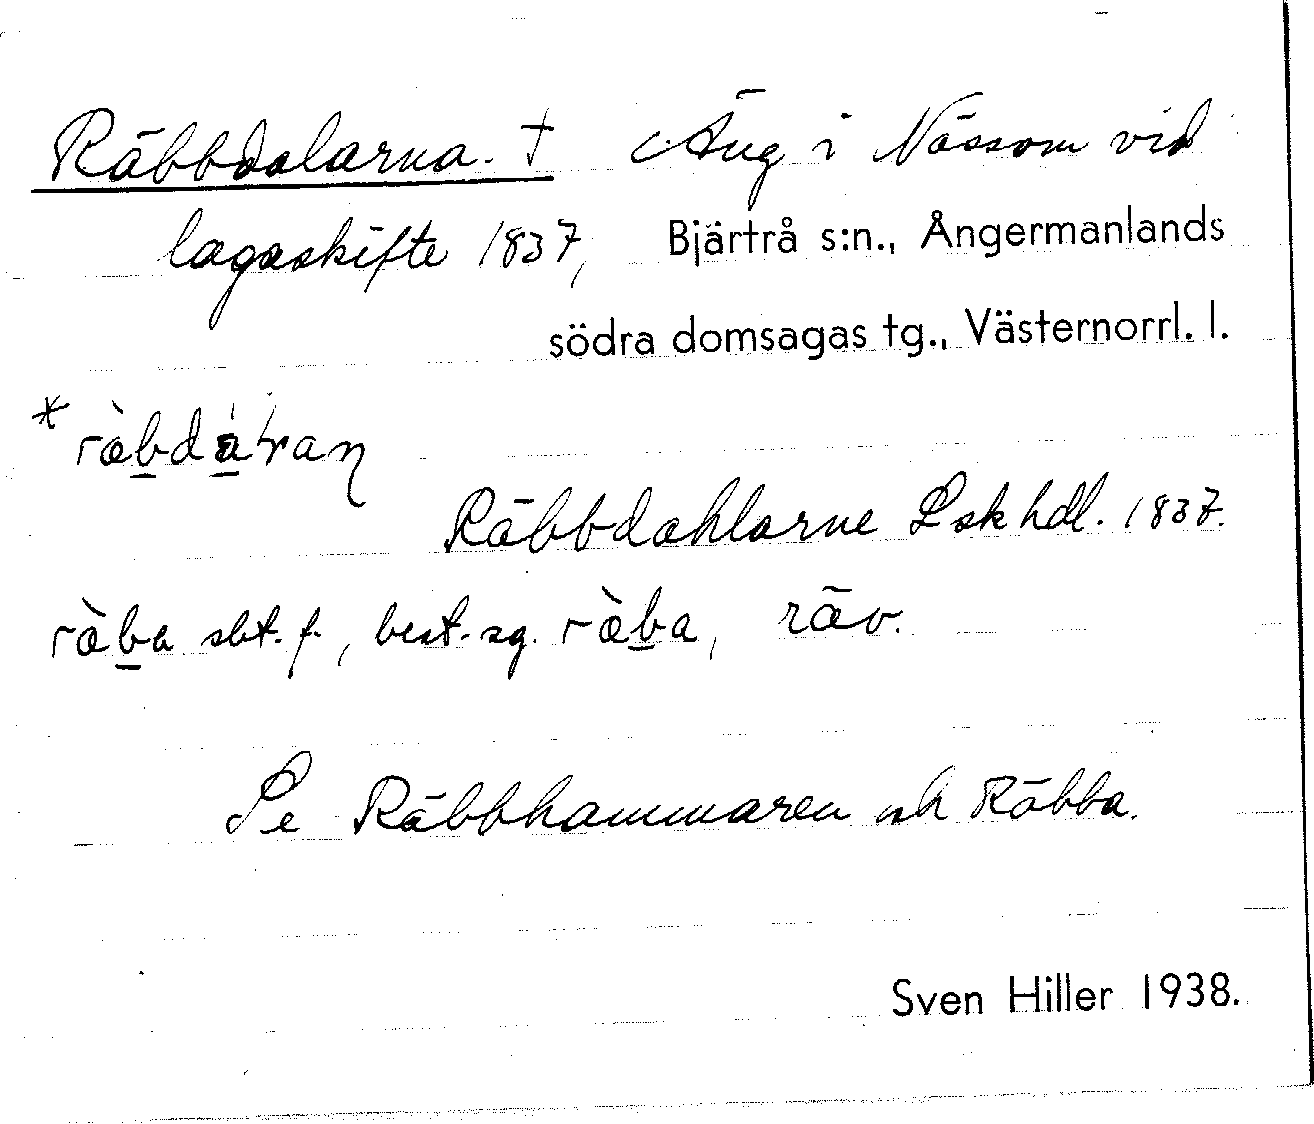 Räbbdalarna. † Äng i Nässom vid
lagaskifte 1837, Bjärtrå s:n., Ångermanlands
södra domsagas tg., Västernorrl. l.
Räbbdahlarne Lskhdl. 1837.
ràba sbt. f., best. sg. ràba, räv.
Se Räbbhammaren och Räbba.
Sven Hiller 1938.